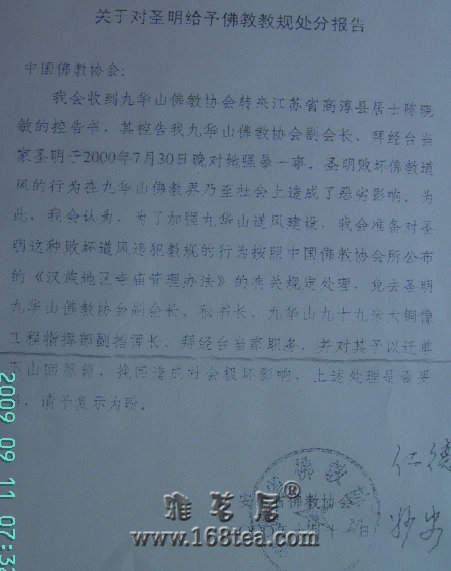 关于对圣明给予佛教教规处分报告
中国佛教协会:
我会收到九华山佛教协会转来江苏省高淳县居士陈晓
敏的控告书,其控告我九华山佛教协会副会长、拜经台当
家圣明于2000年7月30日晚对她 一事。圣明败坏佛教道
风的行为在九华山佛教界乃至社会上造成了恶劣影响。为
此,我会认为,为了加强九华山道风建设,我会准备对圣
明这种败坏道风违犯教规的行为按照中国佛教协会所公布
的《汉族地区寺庙管理办法》的有关规定处理,免去圣明
九华山佛教协会副会长、秘书长、九华山九十九米大铜像
工程指挥部副指挥长、拜经台当家职务,并对其予以迁单
下山回原籍,挽回造成社会极坏影响,上述处理是否妥
当,请予批示为盼。
仁德
省佛教协会
雅茗居®
www.168tea.com
2009 09 11 07:3